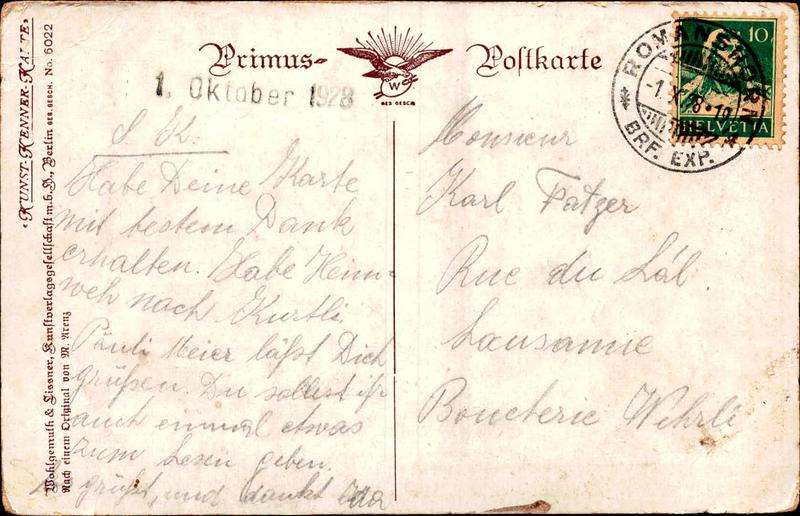 "KUNST-KENNER-KARTE" No. 6022
Wohlgemuth & Lissner, Kunstverlagsgesellschaft m.b.H., Berlin GES. GESCH.
Nach einem Original von M. Arenz
Primus- Postkarte
W
GES. GESCH
1. Oktober 1928
S. K.
Habe Deine Karte
mit bestem Dank
erhalten. Habe Heim-
weh nach Kurtli.
Päuli Meier läßt Dich
grüßen. Du sollest ihr
auch einmal etwas
zum Lesen geben.
grüßt, und dankt Ida
10
HELVETIA
ROMANSHORN
BRF. EXP.
Monsieur
Karl Fatzer
Rue du Lál
Lausanne
Boucterie Wehrli